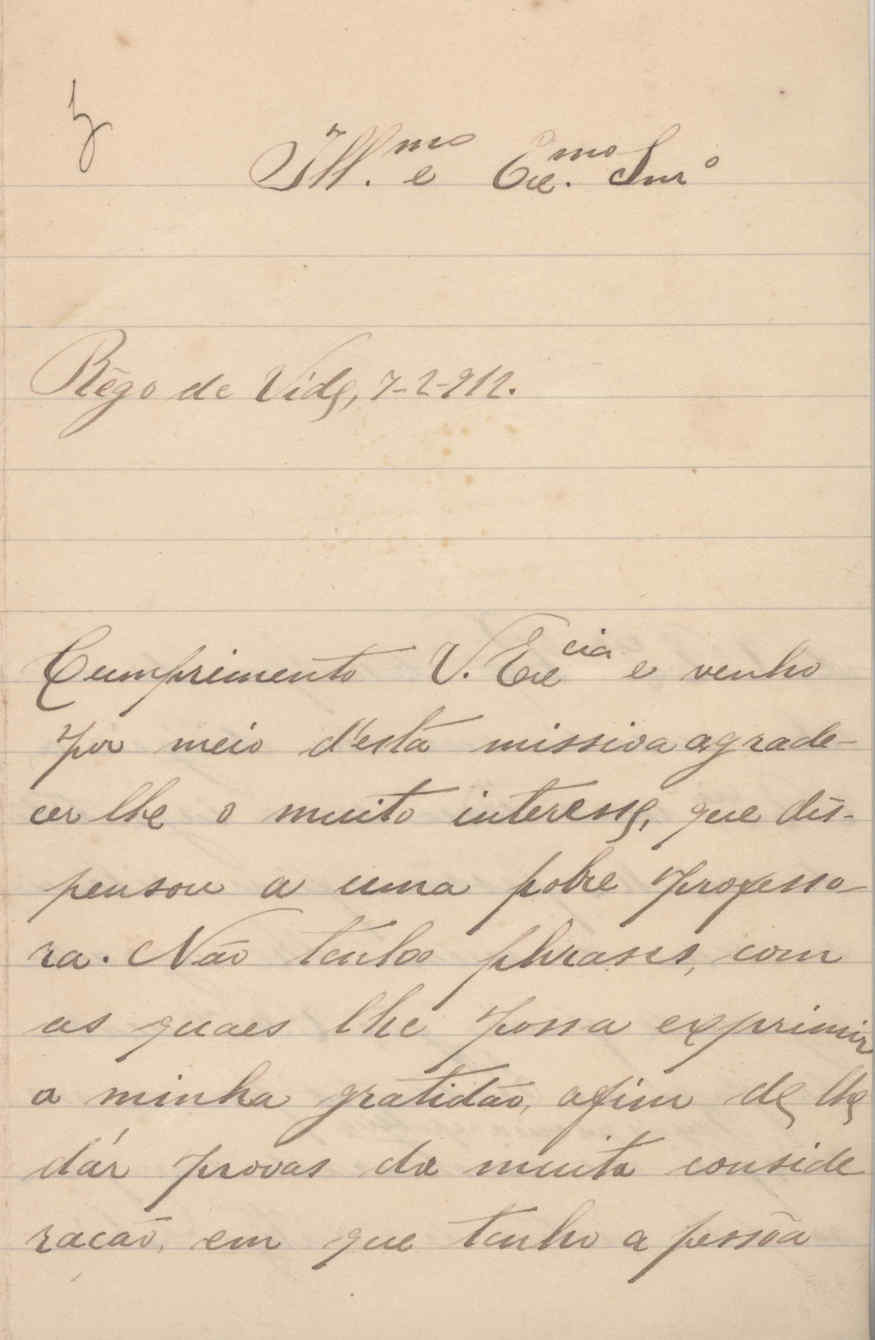 Ill.mo e Exc.mo Snr.º
Rêgo de Vide, 7-2-912.
Cumprimento V. Excia e venho
por meio d'esta missiva agrade-
cer lhe o muito interesse, que dis-
pensou a uma pobre professo-
ra. Não tenho phrases, com
as quaes lhe possa exprimir
a minha gratidão, afim de lhe
dár provas da muita conside
ração, em que tenho a pessôa